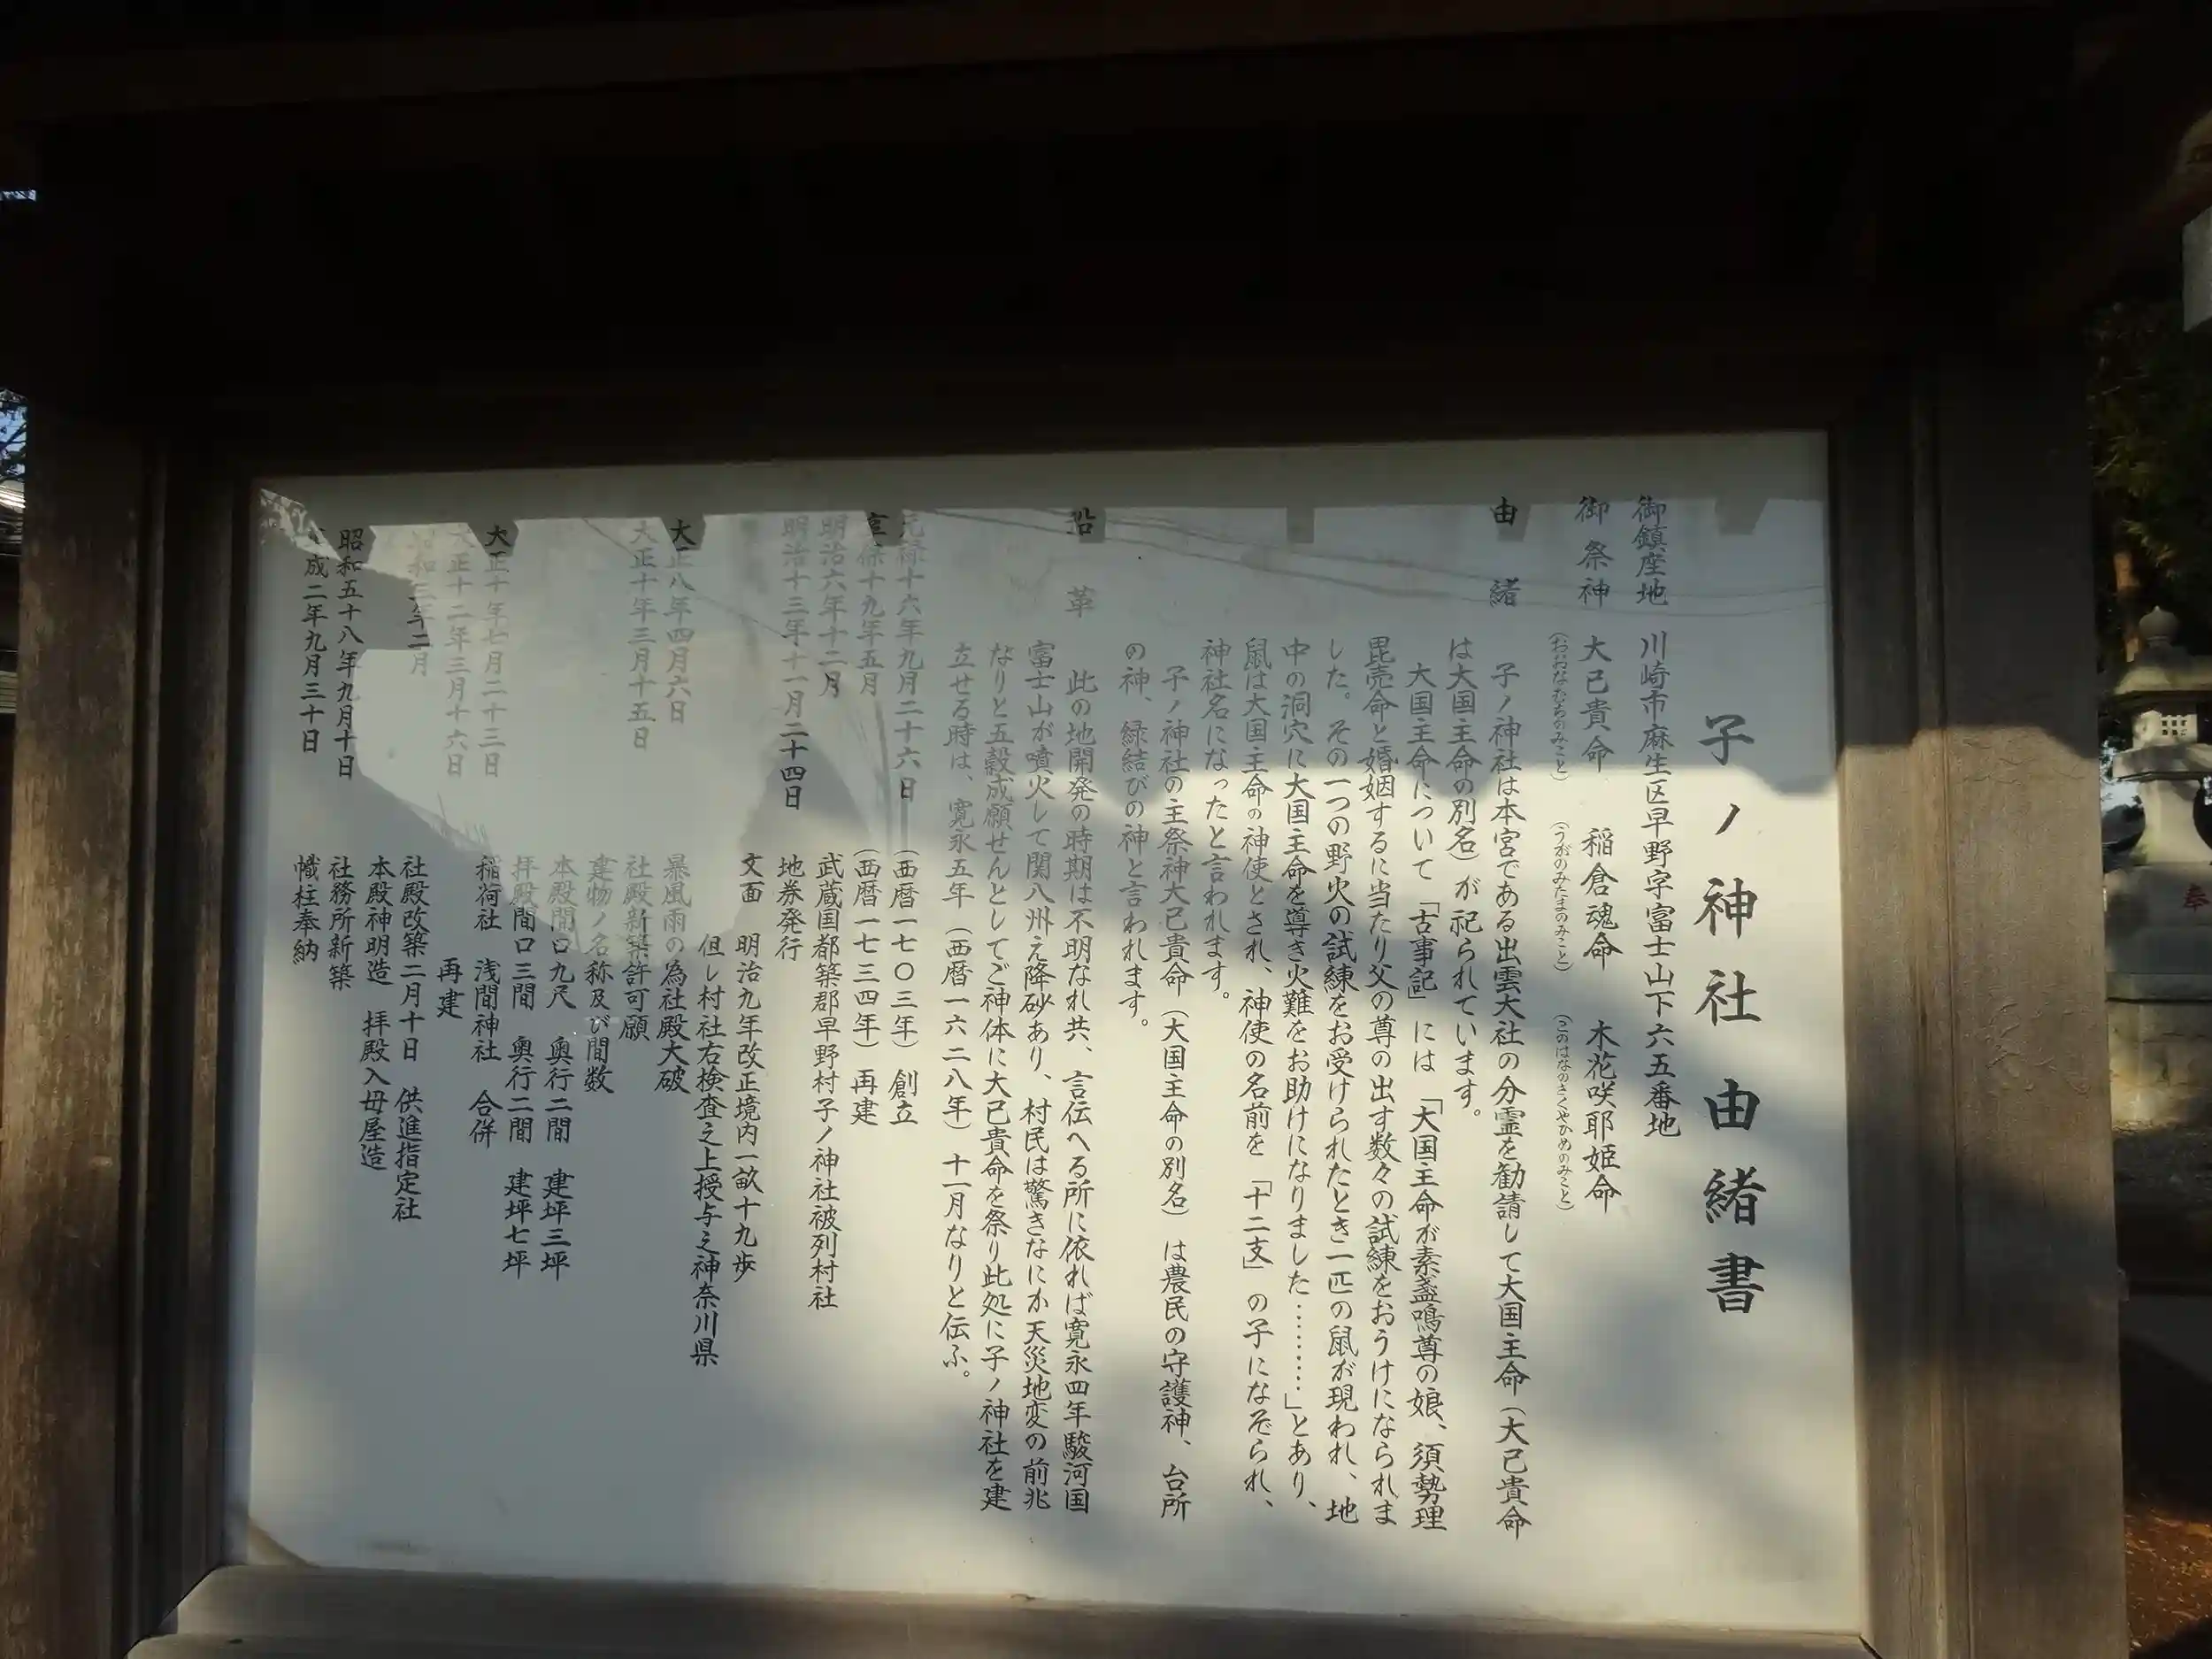 子ノ神社由緒書
御鎮座地　川崎市麻生区早野字富士山下六五番地
御祭神　大己貴命　稲倉魂命　木花咲耶姫命
（おおなむちのみこと）　（うがのみたまのみこと）　（このはなのさくやひめのみこと）
由緒　子ノ神社は本宮である出雲大社の分霊を勧請して大国主命（大己貴命
は大国主命の別名）が祀られています。
大国主命について「古事記」には「大国主命が素盞鳴尊の娘、須勢理
毘売命と婚姻するに当たり父の尊の出す数々の試練をおうけになられま
した。その一つの野火の試練をお受けられたとき一匹の鼠が現われ、地
中の洞穴に大国主命を導き火難をお助けになりました………」とあり、
鼠は大国主命の神使とされ、神使の名前を「十二支」の子になぞられ、
神社名になったと言われます。
子ノ神社の主祭神大己貴命（大国主命の別名）は農民の守護神、台所
の神、縁結びの神と言われます。
沿革　此の地開発の時期は不明なれ共、言伝へる所に依れば寛永四年駿河国
富士山が噴火して関八州え降砂あり、村民は驚きなにか天災地変の前兆
なりと五穀成願せんとしてご神体に大己貴命を祭り此処に子ノ神社を建
立せる時は、寛永五年（西暦一六二八年）十一月なりと伝ふ。
元禄十六年九月二十六日（西暦一七〇三年）創立
享保十九年五月（西暦一七三四年）再建
明治六年十二月　武蔵国都築郡早野村子ノ神社被列村社
明治十三年十一月二十四日　地券発行
文面　明治九年改正境内一畝十九歩
但し村社右検査之上授与之神奈川県
大正八年四月六日　暴風雨の為社殿大破
大正十年三月十五日　社殿新築許可願
建物ノ名称及び間数
本殿間口九尺　奥行二間　建坪三坪
拝殿間口三間　奥行二間　建坪七坪
大正十年七月二十三日　稲荷社　浅間神社　合併
大正十二年三月十六日　再建
昭和三年二月　社殿改築二月十日　供進指定社
本殿神明造　拝殿入母屋造
昭和五十八年九月十日　社務所新築
成二年九月三十日　幟柱奉納
奉